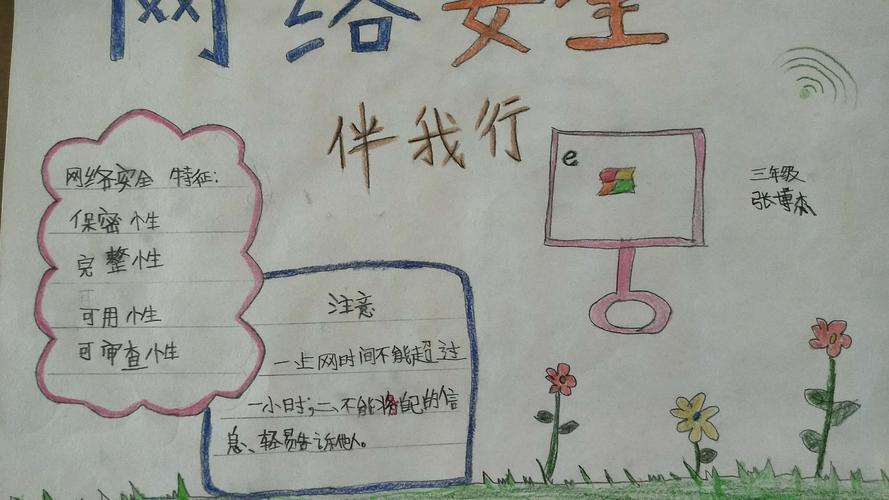 网络安全
伴我行
网络安全 特征:
保密性
完整性
可用性
可审查性
注意
一上网时间不能超过
一小时;二、不能将自己的信
息、轻易告诉他人。
e
三年级
张博杰